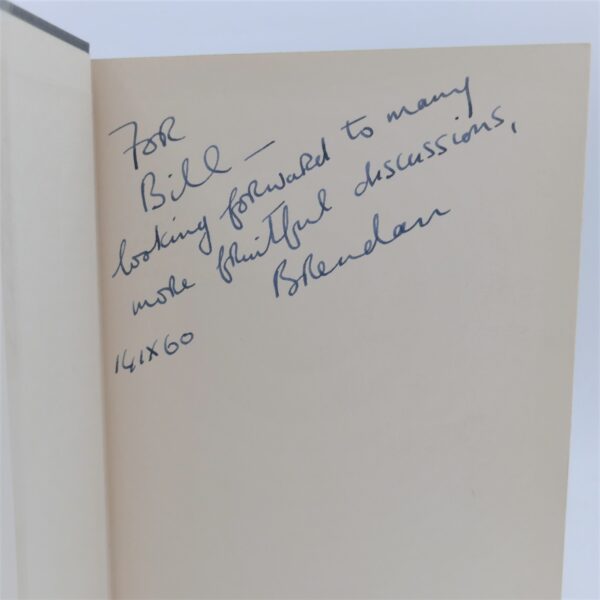 For
Bill —
looking forward to many
more fruitful discussions,
Brendan
14 IX 60